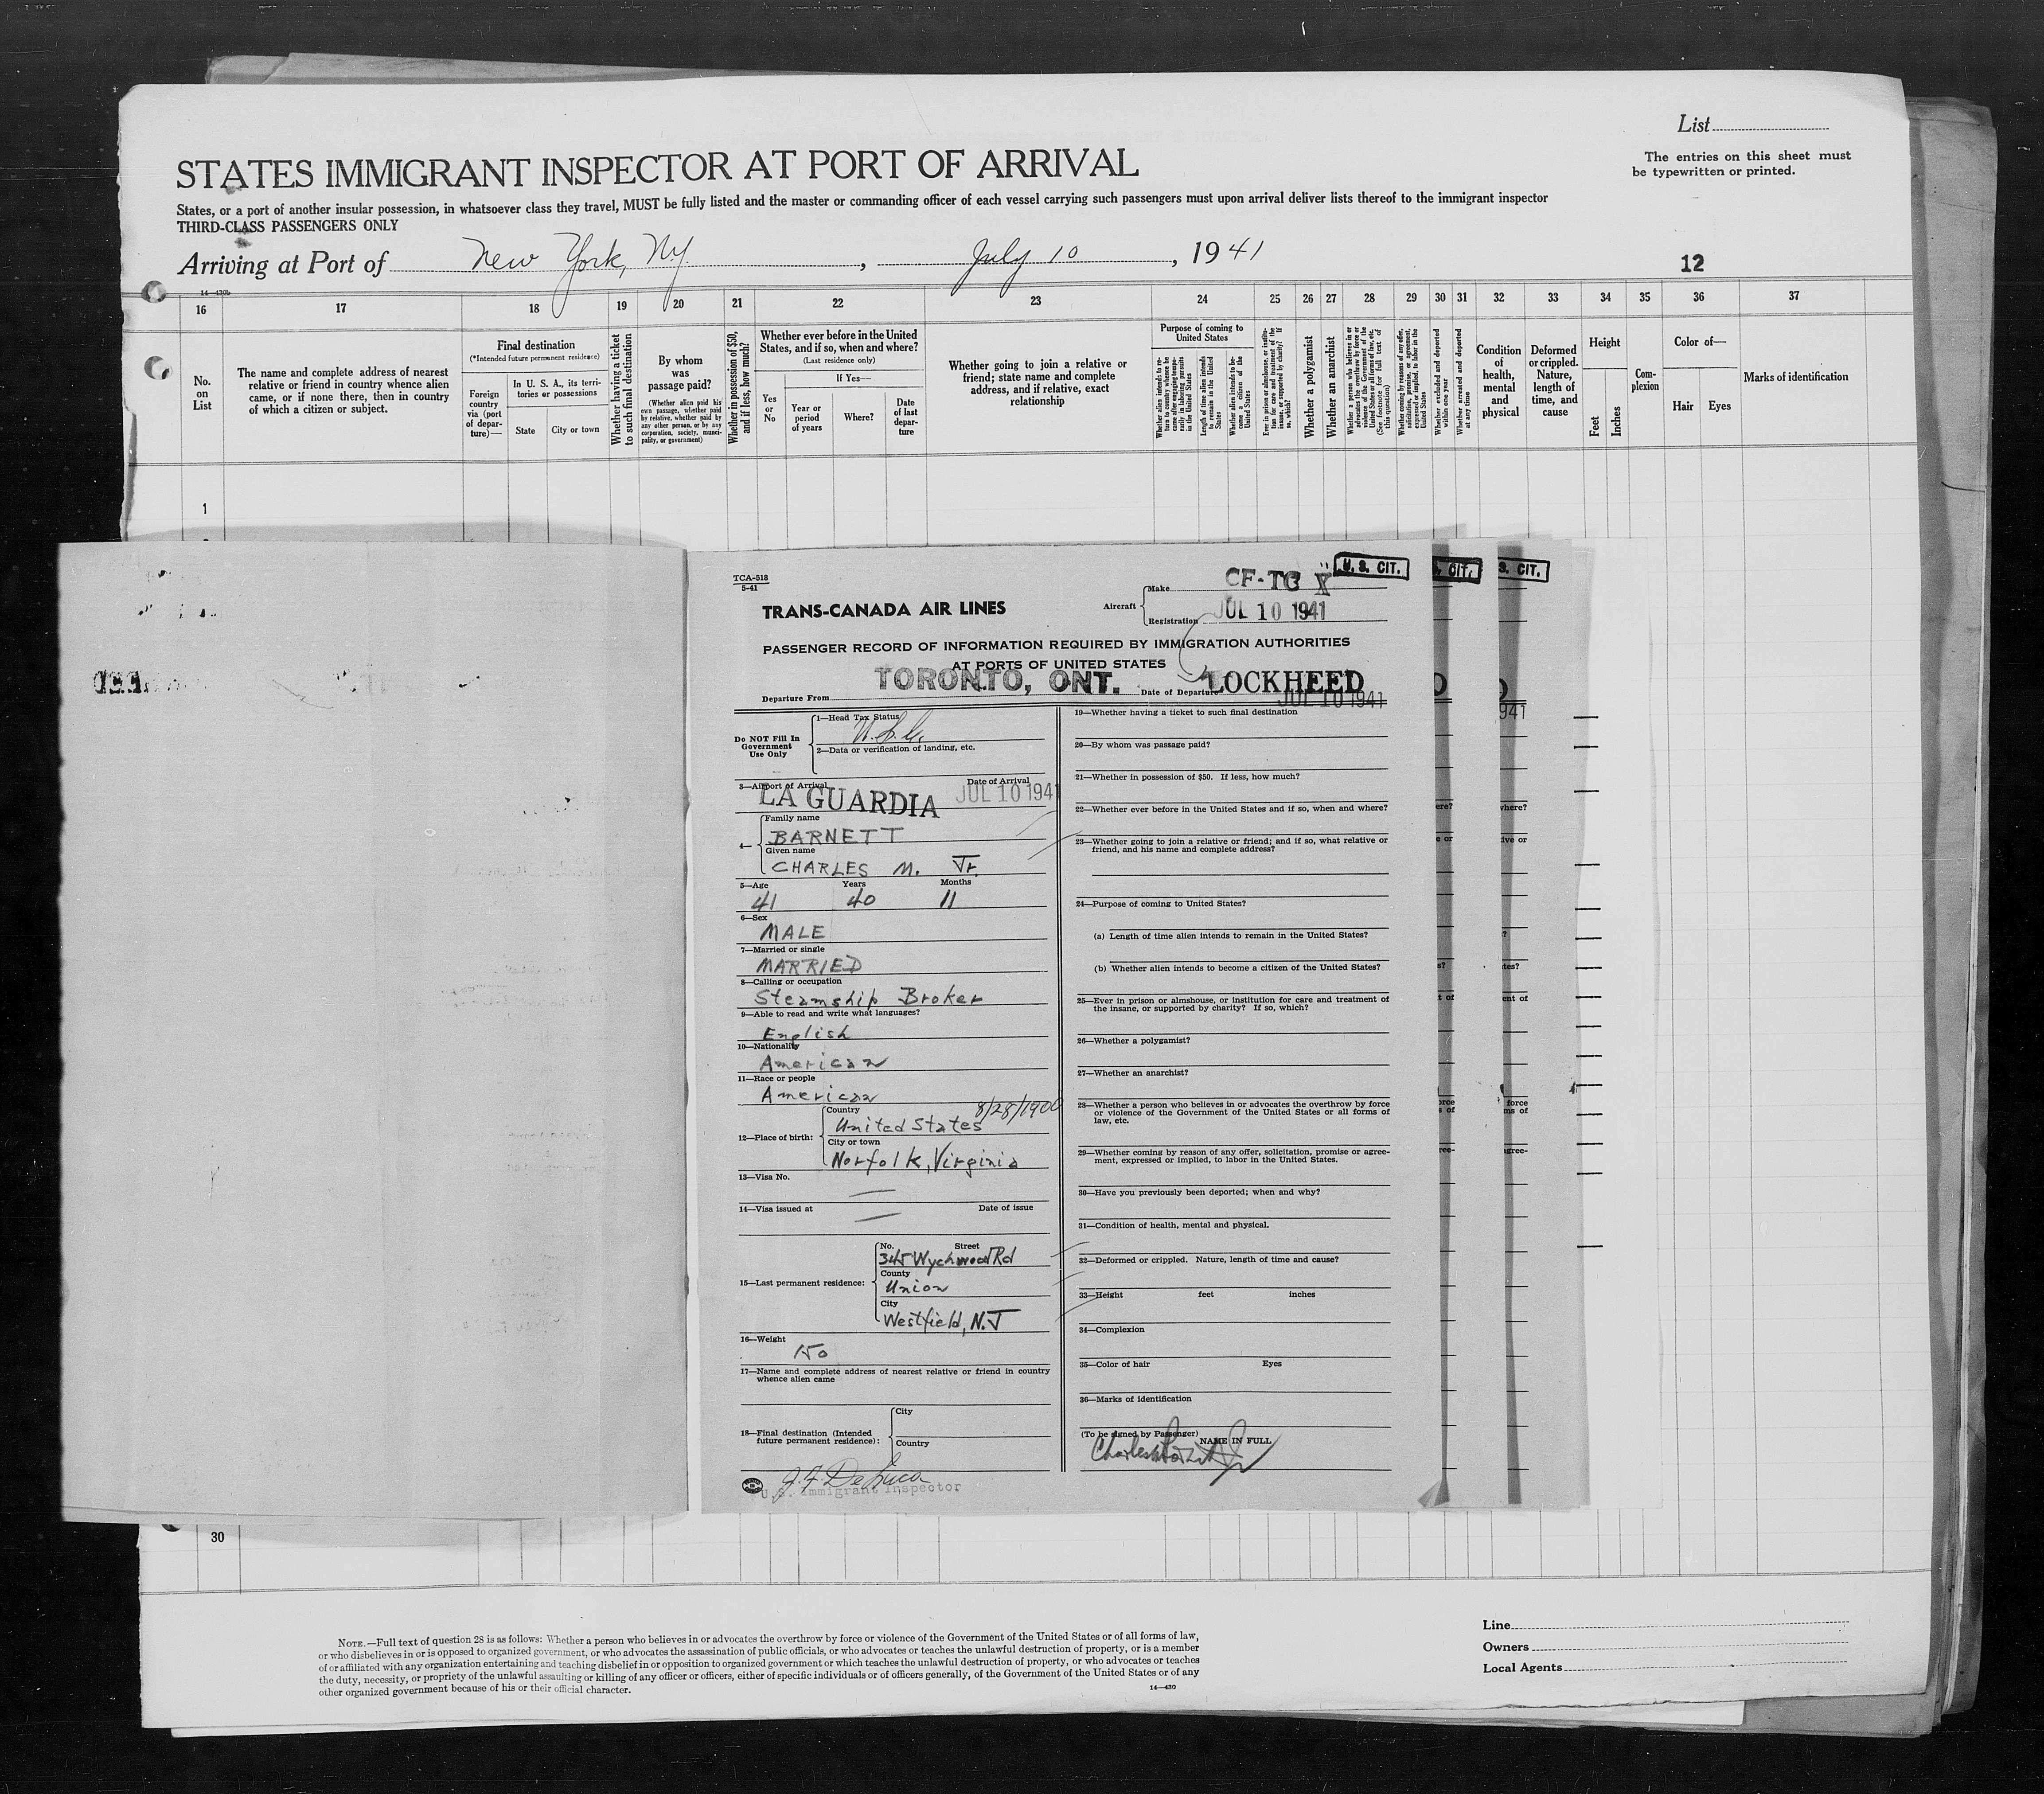 List
The entries on this sheet must
be typewritten or printed.
STATES IMMIGRANT INSPECTOR AT PORT OF ARRIVAL
States, or a port of another insular possession, in whatsoever class they travel, MUST be fully listed and the master or commanding officer of each vessel carrying such passengers must upon arrival deliver lists thereof to the immigrant inspector
THIRD-CLASS PASSENGERS ONLY
Arriving at Port of New York, N.Y. , July 10 , 1941
12
14—430b
16 17 18 19 20 21 22 23 24 25 26 27 28 29 30 31 32 33 34 35 36 37
No. on List
The name and complete address of nearest relative or friend in country whence alien came, or if none there, then in country of which a citizen or subject.
Final destination
(*Intended future permanent residence)
Foreign country via (port of departure)—
In U. S. A., its territories or possessions
State
City or town
Whether having a ticket to such final destination
By whom was passage paid?
(Whether alien paid his own passage, whether paid by relative, whether paid by any other person, or by any corporation, society, municipality, or government)
Whether in possession of $50, and if less, how much?
Whether ever before in the United States, and if so, when and where?
(Last residence only)
If Yes—
Yes or No
Year or period of years
Where?
Date of last departure
Whether going to join a relative or friend; state name and complete address, and if relative, exact relationship
Purpose of coming to United States
Whether alien intends to return to country whence he came after engaging temporarily in laboring pursuits in the United States
Length of time alien intends to remain in the United States
Whether alien intends to become a citizen of the United States
Ever in prison or almshouse, or institution for care and treatment of the insane, or supported by charity? If so, which?
Whether a polygamist
Whether an anarchist
Whether a person who believes in or advocates the overthrow by force or violence of the Government of the United States or all forms of law, etc. (See footnote for full text of this question)
Whether coming by reasons of any offer, solicitation, promise, or agreement, expressed or implied, to labor in the United States
Whether excluded and deported within one year
Whether arrested and deported at any time
Condition of health, mental and physical
Deformed or crippled. Nature, length of time, and cause
Height
Feet
Inches
Complexion
Color of—
Hair
Eyes
Marks of identification
1
TCA-518
5-41
TRANS-CANADA AIR LINES
Aircraft
Make CF-TC X
Registration JUL 10 1941
U. S. CIT.
CIT.
S. CIT.
PASSENGER RECORD OF INFORMATION REQUIRED BY IMMIGRATION AUTHORITIES
AT PORTS OF UNITED STATES
Departure From TORONTO, ONT. Date of Departure LOCKHEED
JUL 10 1941
941
Do NOT Fill In
Government
Use Only
1—Head Tax Status
2—Data or verification of landing, etc.
3—Airport of Arrival Date of Arrival
LA GUARDIA JUL 10 1941
4—
Family name
BARNETT
Given name
CHARLES M. Jr.
5—Age Years Months
41 40 11
6—Sex
MALE
7—Married or single
MARRIED
8—Calling or occupation
Steamship Broker
9—Able to read and write what languages?
English
10—Nationality
American
11—Race or people
American
12—Place of birth:
Country 8/28/1900
United States
City or town
Norfolk, Virginia
13—Visa No.
14—Visa issued at Date of issue
15—Last permanent residence:
No. Street
345 Wychwood Rd
County
Union
City
Westfield, N.J
16—Weight
150
17—Name and complete address of nearest relative or friend in country
whence alien came
18—Final destination (Intended
future permanent residence):
City
Country
J. F. DeLuca
U.S. Immigrant Inspector
19—Whether having a ticket to such final destination
20—By whom was passage paid?
21—Whether in possession of $50. If less, how much?
22—Whether ever before in the United States and if so, when and where?
23—Whether going to join a relative or friend; and if so, what relative or
friend, and his name and complete address?
24—Purpose of coming to United States?
(a) Length of time alien intends to remain in the United States?
(b) Whether alien intends to become a citizen of the United States?
25—Ever in prison or almshouse, or institution for care and treatment of
the insane, or supported by charity? If so, which?
26—Whether a polygamist?
27—Whether an anarchist?
28—Whether a person who believes in or advocates the overthrow by force
or violence of the Government of the United States or all forms of
law, etc.
29—Whether coming by reason of any offer, solicitation, promise or agree-
ment, expressed or implied, to labor in the United States.
30—Have you previously been deported; when and why?
31—Condition of health, mental and physical.
32—Deformed or crippled. Nature, length of time and cause?
33—Height feet inches
34—Complexion
35—Color of hair Eyes
36—Marks of identification
(To be signed by Passenger) NAME IN FULL
30
NOTE.—Full text of question 28 is as follows: Whether a person who believes in or advocates the overthrow by force or violence of the Government of the United States or of all forms of law,
or who disbelieves in or is opposed to organized government, or who advocates the assassination of public officials, or who advocates or teaches the unlawful destruction of property, or is a member
of or affiliated with any organization entertaining and teaching disbelief in or opposition to organized government or which teaches the unlawful destruction of property, or who advocates or teaches
the duty, necessity, or propriety of the unlawful assaulting or killing of any officer or officers, either of specific individuals or of officers generally, of the Government of the United States or of any
other organized government because of his or their official character.
14—430
Line
Owners
Local Agents